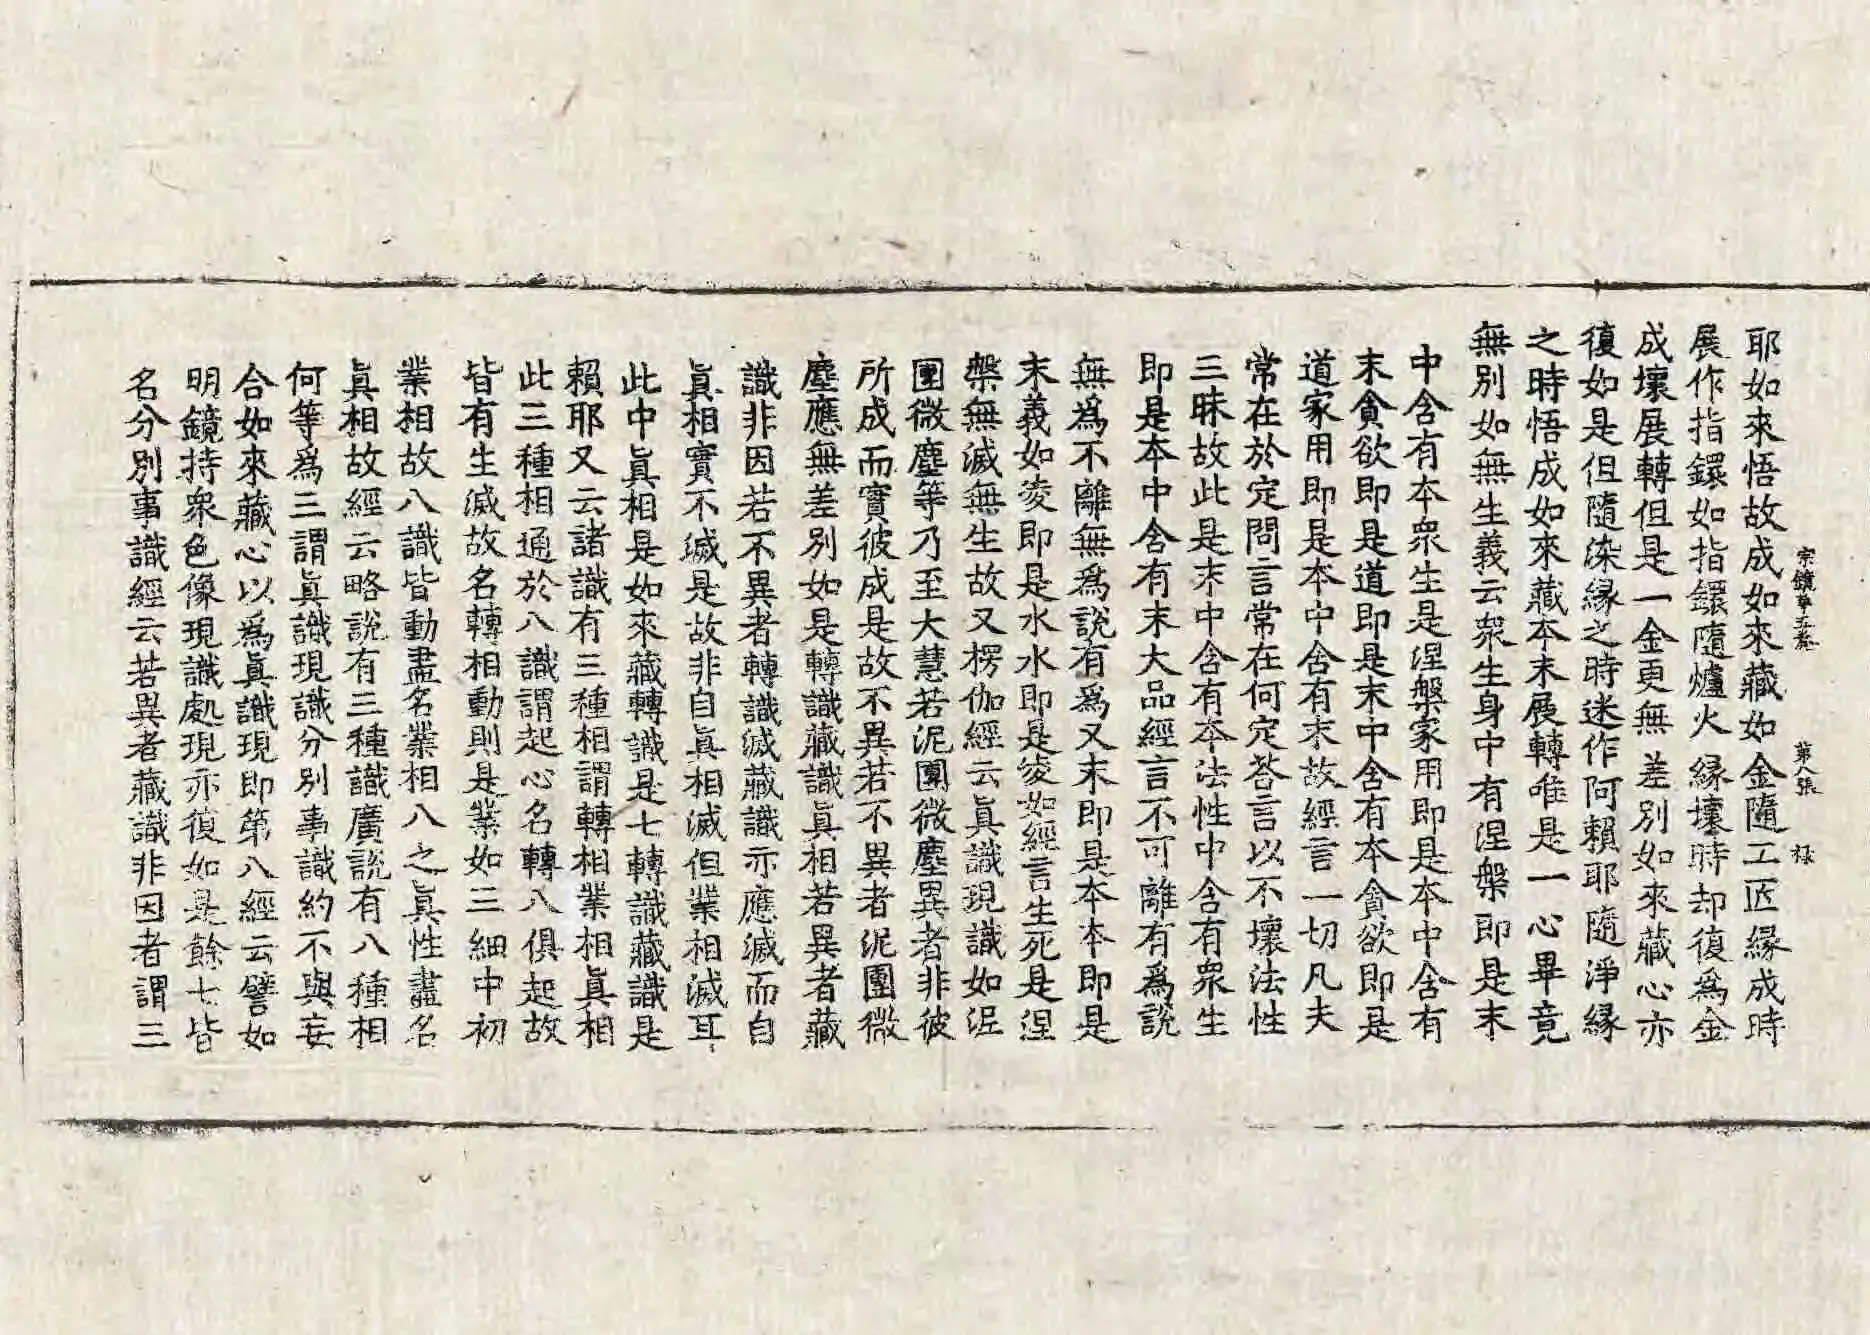 宗鏡第五卷 第八張 祿
耶如來悟故成如來藏如金隨工匠緣成時
展作指鐶如指鐶隨爐火緣壞時却復爲金
成壞展轉但是一金更無差別如來藏心亦
復如是但隨染緣之時迷作阿賴耶隨淨緣
之時悟成如來藏本末展轉唯是一心畢竟
無別如無生義云衆生身中有涅槃即是末
中含有本衆生是涅槃家用即是本中含有
末貪欲即是道即是末中含有本貪欲即是
道家用即是本中含有末故經言一切凡夫
常在於定問言常在何定答言以不壞法性
三昧故此是末中含有本法性中含有衆生
即是本中含有末大品經言不可離有爲說
無爲不離無爲說有爲又末即是本本即是
末義如凌即是水水即是凌如經言生死是涅
槃無滅無生故又楞伽經云眞識現識如泥
團微塵等乃至大慧若泥團微塵異者非彼
所成而實彼成是故不異若不異者泥團微
塵應無差別如是轉識藏識眞相若異者藏
識非因若不異者轉識滅藏識亦應滅而自
眞相實不滅是故非自眞相滅但業相滅耳
此中眞相是如來藏轉識是七轉識藏識是
賴耶又云諸識有三種相謂轉相業相眞相
此三種相通於八識謂起心名轉八俱起故
皆有生滅故名轉相動則是業如三細中初
業相故八識皆動盡名業相八之眞性盡名
眞相故經云略說有三種識廣說有八種相
何等爲三謂眞識現識分別事識約不與妄
合如來藏心以爲眞識現即第八經云譬如
明鏡持衆色像現識處現亦復如是餘七皆
名分別事識經云若異者藏識非因者謂三